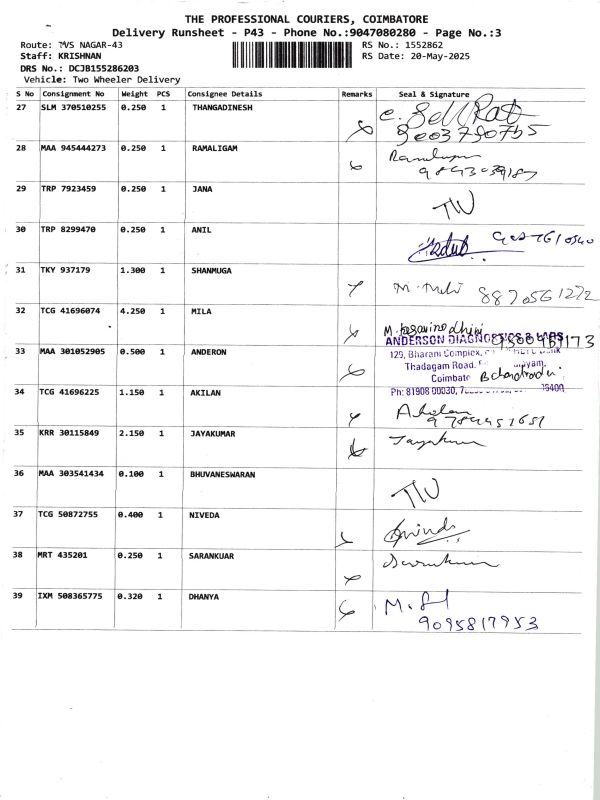 THE PROFESSIONAL COURIERS, COIMBATORE
Delivery Runsheet - P43 - Phone No.:9047080280 - Page No.:3
Route: TVS NAGAR-43 RS No.: 1552862
Staff: KRISHNAN RS Date: 20-May-2025
DRS No.: DCJB155286203
Vehicle: Two Wheeler Delivery
S No Consignment No Weight PCS Consignee Details Remarks Seal & Signature
27 SLM 370510255 0.250 1 THANGADINESH
28 MAA 945444273 0.250 1 RAMALIGAM
29 TRP 7923459 0.250 1 JANA
30 TRP 8299470 0.250 1 ANIL
31 TKY 937179 1.300 1 SHANMUGA
8870561272
32 TCG 41696074 4.250 1 MILA
ANDERSON DIAGNOSTICS & LABS
33 MAA 301052905 0.500 1 ANDERON
129, Bharani Complex,
Thadagam Road.
Coimbato
Ph: 81908 00030,
34 TCG 41696225 1.150 1 AKILAN
Akilan
35 KRR 30115849 2.150 1 JAYAKUMAR
Jayakumar
36 MAA 303541434 0.100 1 BHUVANESWARAN
37 TCG 50872755 0.400 1 NIVEDA
38 MRT 435201 0.250 1 SARANKUAR
39 IXM 508365775 0.320 1 DHANYA
9095817953